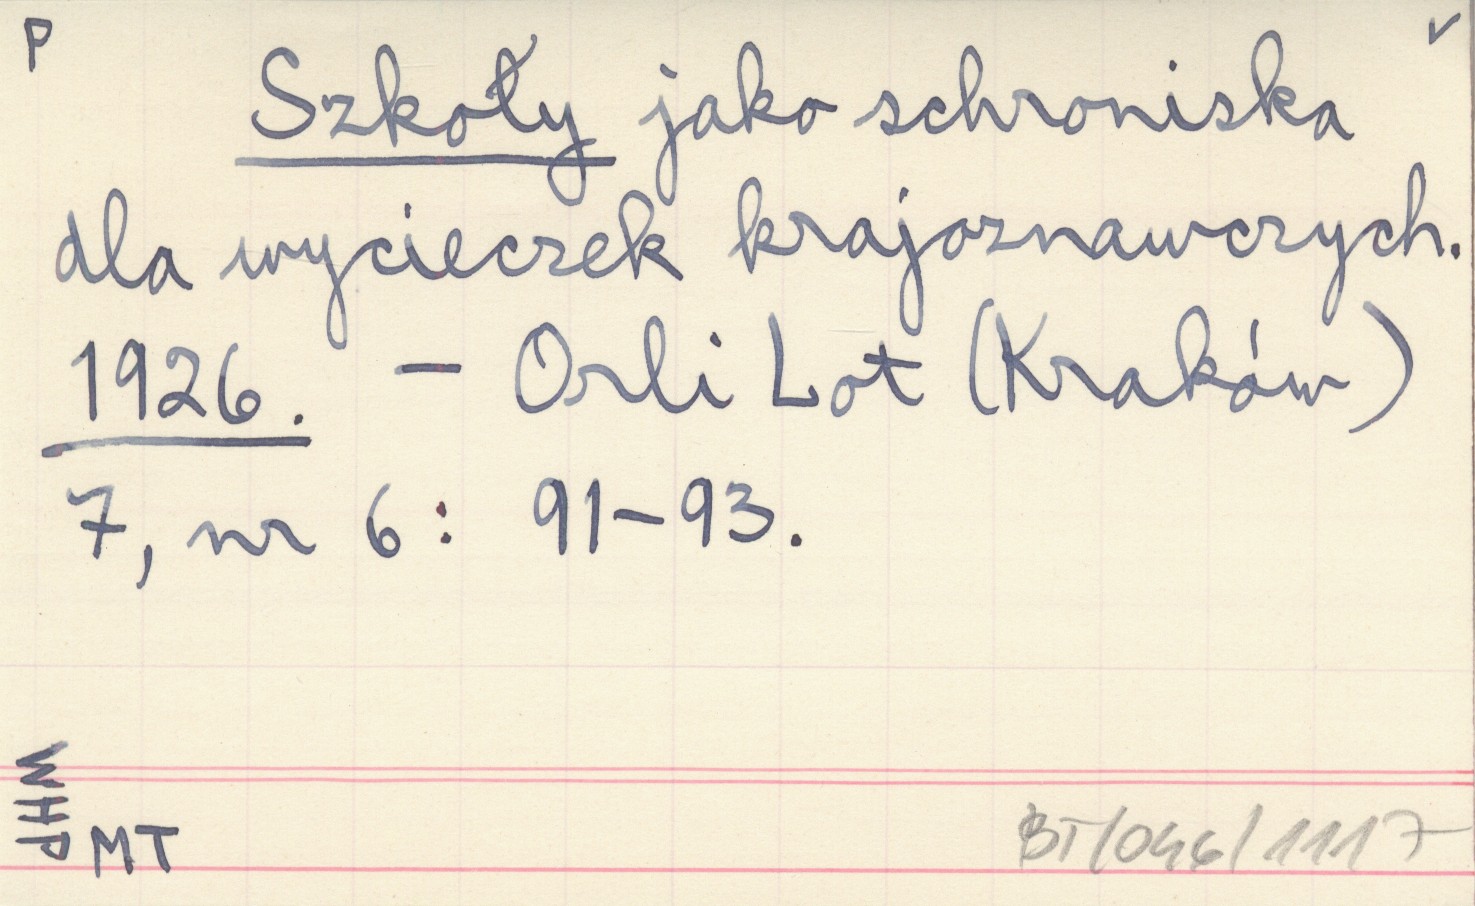 P
✓
Szkoły jako schroniska
dla wycieczek krajoznawczych.
1926. – Orli Lot (Kraków)
7, nr 6: 91–93.
WHP
MT
BT/046/1117